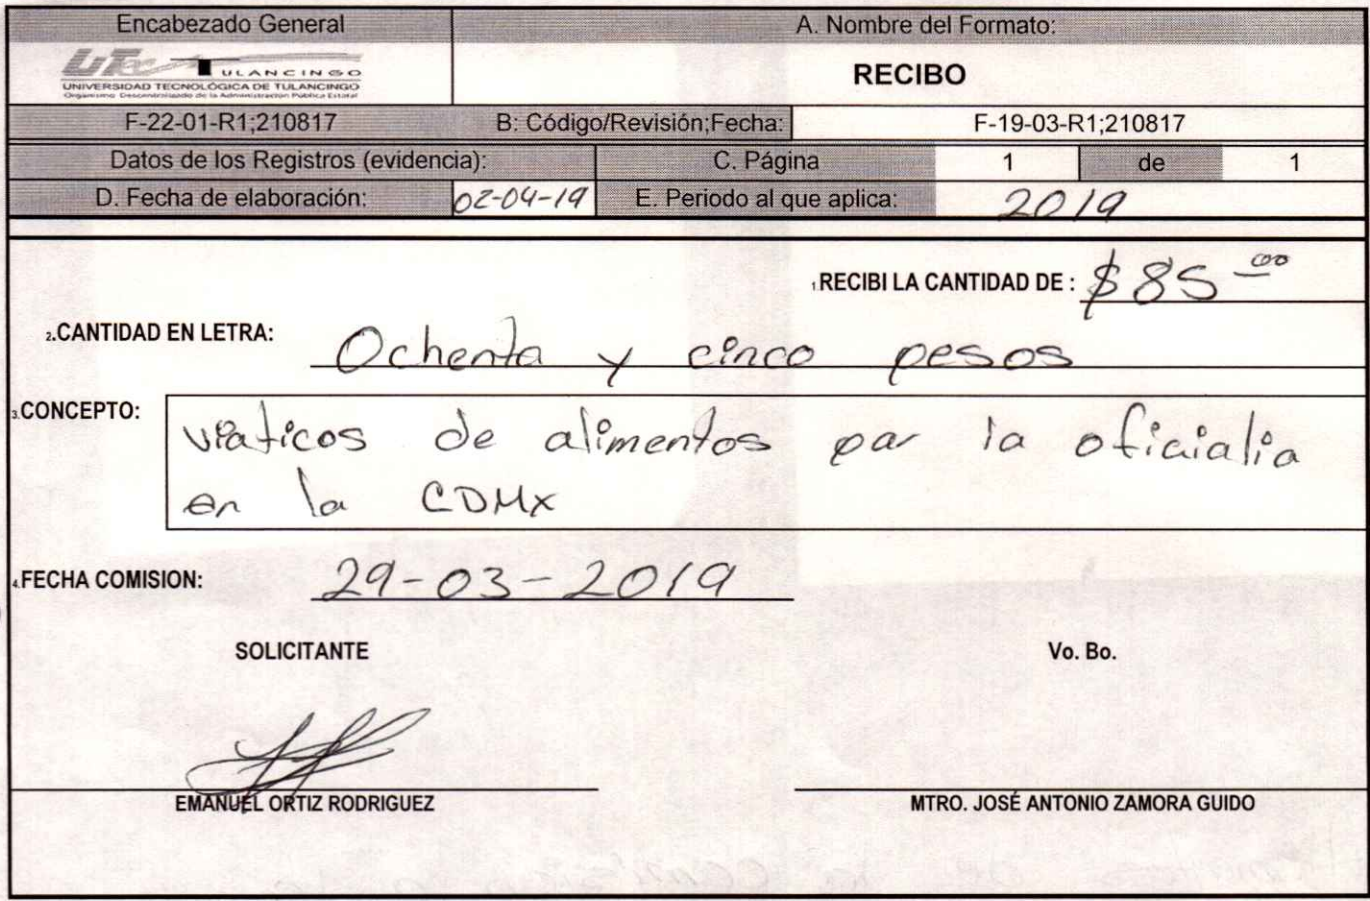 Encabezado General
A. Nombre del Formato:
UTec TULANCINGO
UNIVERSIDAD TECNOLÓGICA DE TULANCINGO
Organismo Descentralizado de la Administración Pública Estatal
RECIBO
F-22-01-R1;210817 B: Código/Revisión;Fecha: F-19-03-R1;210817
Datos de los Registros (evidencia): C. Página 1 de 1
D. Fecha de elaboración: 02-04-19 E. Periodo al que aplica: 2019
1.RECIBI LA CANTIDAD DE : $85 00
2.CANTIDAD EN LETRA: Ochenta y cinco pesos
3.CONCEPTO: viaticos de alimentos par la oficialia
en la CDMX
4.FECHA COMISION: 29-03-2019
SOLICITANTE Vo. Bo.
EMANUEL ORTIZ RODRIGUEZ MTRO. JOSÉ ANTONIO ZAMORA GUIDO